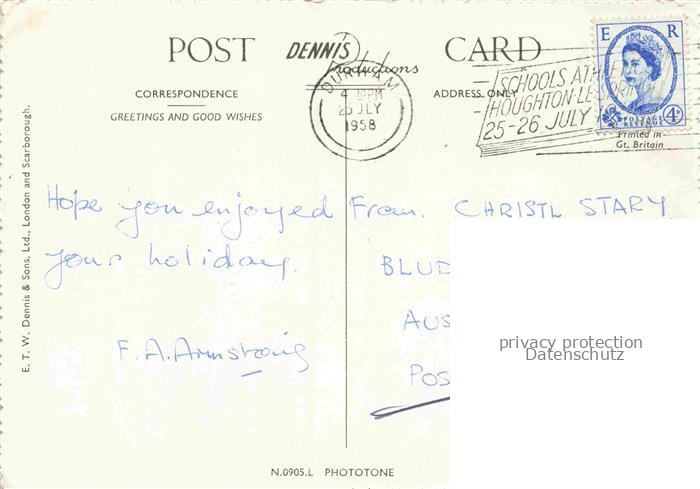 POST DENNIS Productions CARD
CORRESPONDENCE
GREETINGS AND GOOD WISHES
ADDRESS ONLY
DURHAM
25 JLY
1958
SCHOOLS
HOUGHTON-LE-SPRING
25-26 JULY
E R
POSTAGE
REVENUE
4D
Printed in
Gt. Britain
E. T. W. Dennis & Sons, Ltd., London and Scarborough.
Hope you enjoyed
your holiday.
F. A. Armstrong
From. CHRISTL STARY
BLUD
AUS
POS
privacy protection
Datenschutz
N.0905.L PHOTOTONE